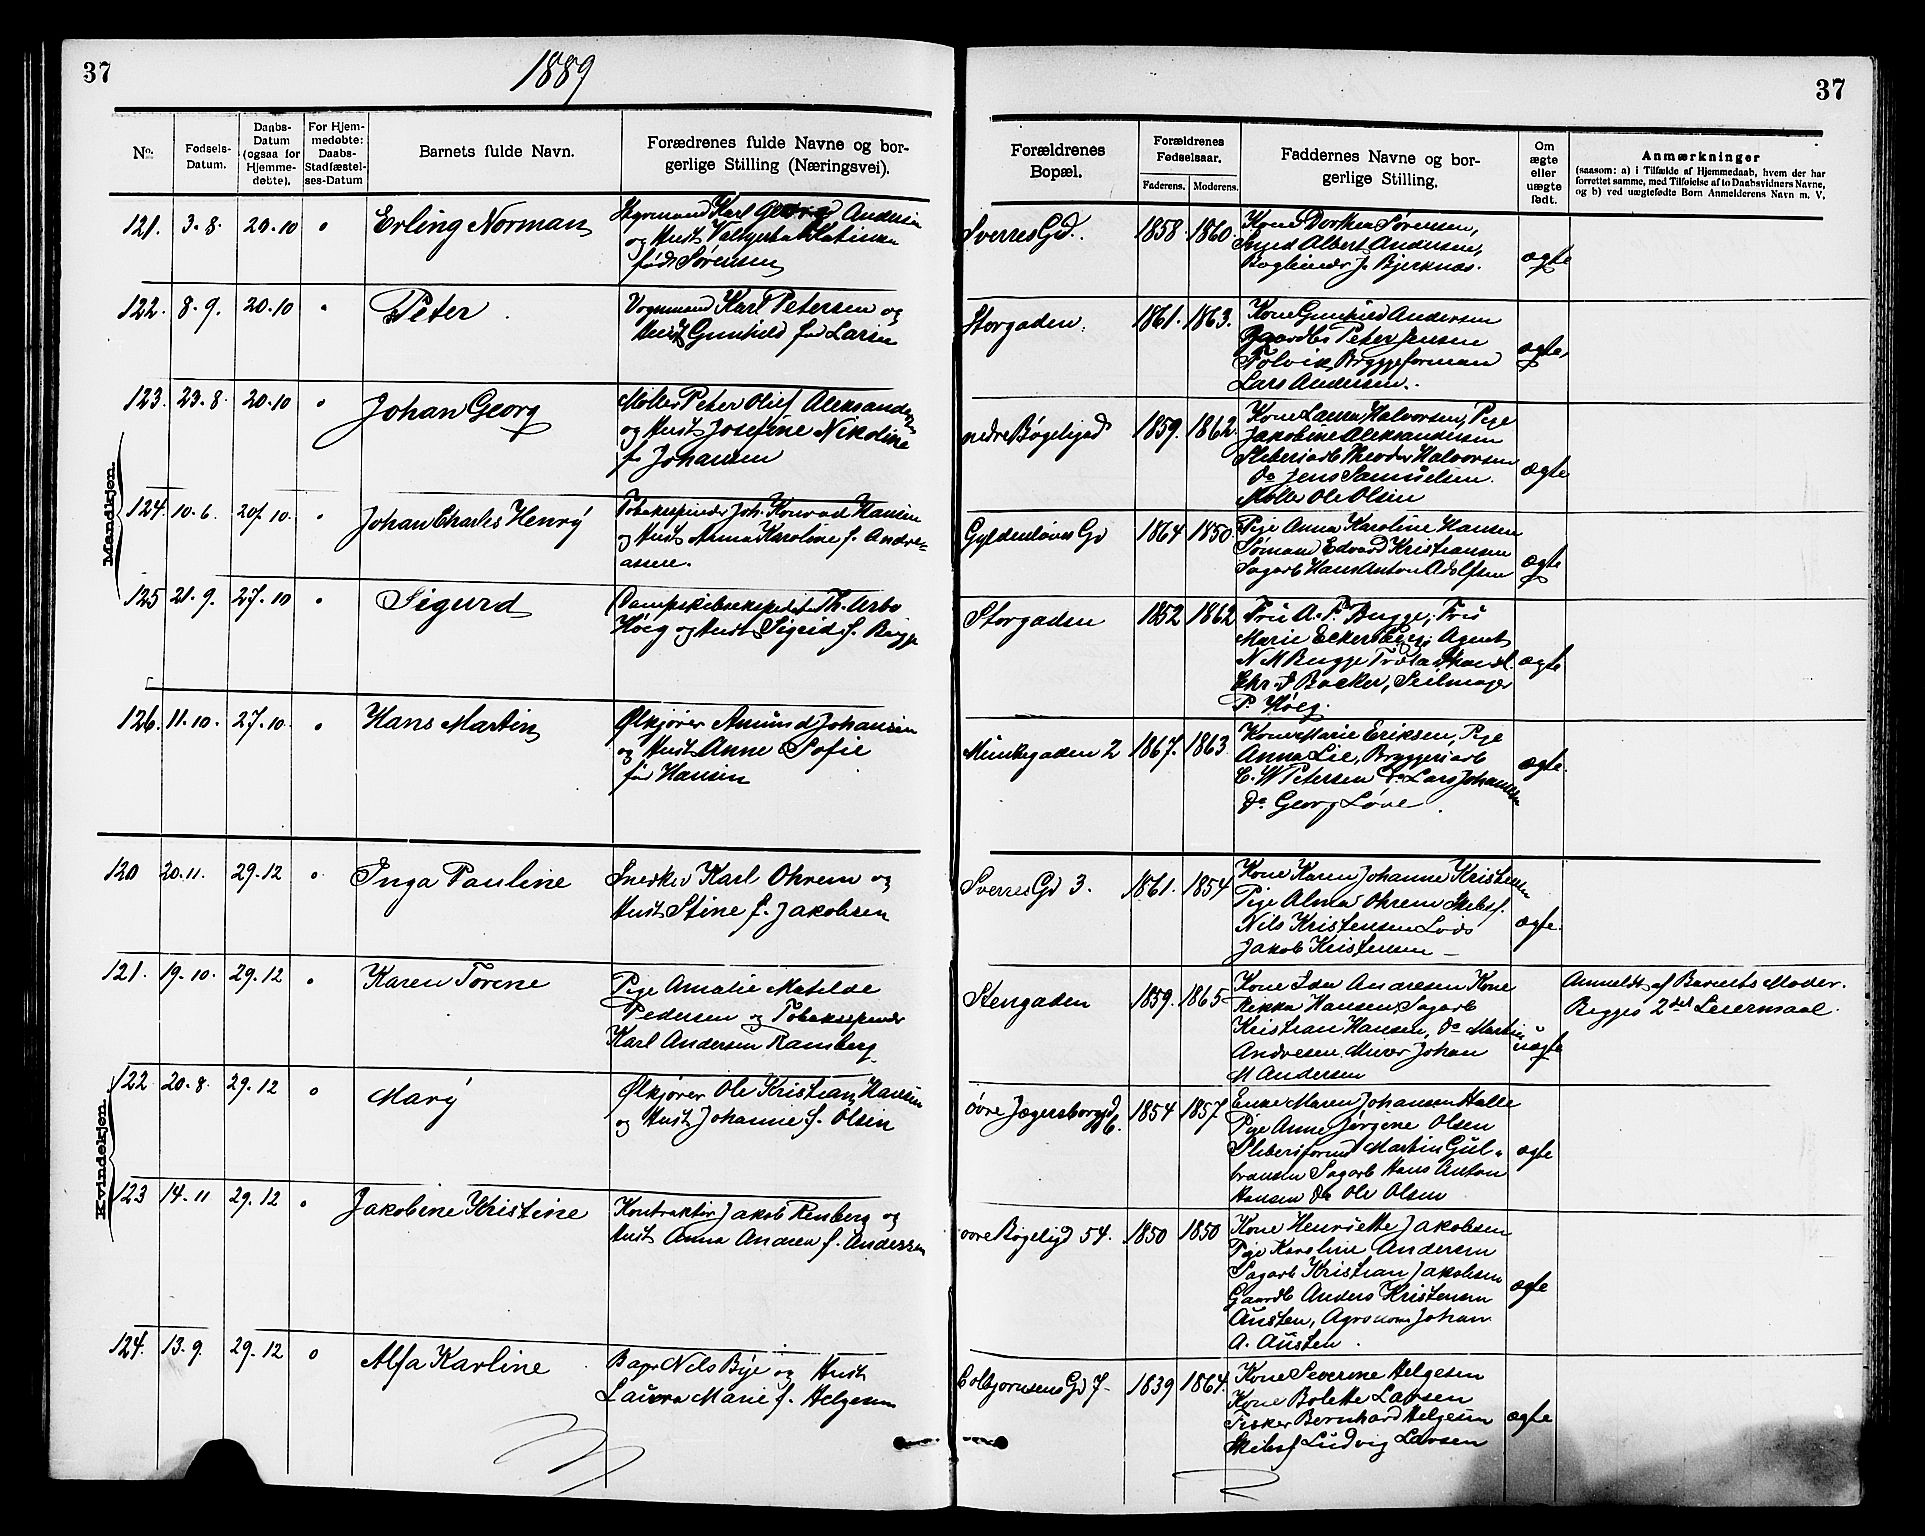 37
1889
37
No.
Fødsels-
Datum.
Daabs-
Datum
(ogsaa for
Hjemme-
døbte).
For Hjem-
medøbte:
Daabs-
Stadfæstel-
ses-Datum
Barnets fulde Navn.
Forældrenes fulde Navne og bor-
gerlige Stilling (Næringsvei).
Forældrenes
Bopæl.
Forældrenes
Fødselsaar.
Faderens. Moderens.
Faddernes Navne og bor-
gerlige Stilling.
Om
ægte
eller
uægte
født.
Anmærkninger
(saasom: a) i Tilfælde af Hjemmedaab, hvem der har
forrettet samme, med Tilføielse af to Daabsvidners Navne,
og b) ved uægtefødte Børn Anmelderens Navn m. V.
Mandkjøn.
121. 3-8. 20.10 Erling Norman
Styrmand Karl Georg Andersen
og Hust
født Sørensen
Sverres Gd. 1858 1860.
Kone Dorthea Sørensen,
Albert Andersen,
Bogbinder J. Bjerknæs.
ægte
122. 8-9. 20.10 Peter
Vognmand Karl Petersen og
Hust Gunhild fød Larsen
Storgaden. 1861. 1863.
Kone Gunhild Andersen
Gaardbr Peter Jensen
Tølvik Bryggeformand
Lars Andersen.
ægte
123. 23-8. 20.10 Johan Georg
Møller Peter Oluf Aleksandersen
og Hust Josefine Nikoline
f Johansen
nedre Bøgeligd 1859. 1862.
Kone Laura Halvorsen, Pige
Jakobine Aleksandersen
Sliberiarb Theodor Halvorsen
Do Jens Samuelsen.
Møller Ole Olsen
ægte
124. 10-6. 20.10. Johan Charles Henrÿ
Tobakspinder Joh. Konrad Hansen
og Hust Anna Karoline f. Andre-
assen.
Gyldenløves Gd 1864 1850
Pige Anna Karoline Hansen
Sømand Edvard Kristiansen
Sagarb Hans Anton Adolfsen
ægte
125 21-9. 27-10 Sigurd
Dampskibsekspeditør Th. Arbo
Høeg og Hust Sigrid f. Bugge
Storgaden 1852 1862
Fru A. F. Bugge, Fru
Marie Eckersberg, Agent
N M Bugge
Chr. d Backer, Seilmager
P. Høeg.
ægte
126. 11.10. 27-10. Hans Martin
Ølkjører Amund Johansen
og Hust Anne Sofie
før Hansen
Munkegaden 2 1867. 1863.
Kone Marie Eriksen, Pige
Anna Lie, Bryggeriarb
C. W Petersen Do Lars Johansen
Do Georg Løve.
ægte.
Kvindekjøn.
120 20.11. 29.12 Inga Pauline
Snedker Karl Ohrem og
Hust Stine f. Jakobsen
Sverres Gd 3. 1861. 1854
Kone Karen Johanne Kristensen
Pige Alma Ohrem Skibsf.
Nils Kristensen Lods
Jakob Kristensen
ægte.
121. 19-10. 29.12 Karen Torene
Pige Amalie Matilde
Pedersen og Tobakspinder
Karl Andersen Ramberg
Stengaden 1859. 1865
Kone Ida Andresen Kone
Rikka Hansen, Sagarb
Kristian Hansen, Do Martin
Andresen. Murer Johan
M Andersen
uægte
Anmeldt af Barnets Moder.
Begges 2det Leiermaal.
122 20-8. 29-12 Marÿ
Ølkjører Ole Kristian Hansen
og Hust Johanne f. Olsen
øvre Jægersborggd 6. 1854 1857
Enke Maren Johansen Halle
Pige Anne Jørgine Olsen
Sliberiformd Martin Gul-
bransen Sagarb Hans Anton
Hansen Do Ole Olsen
ægte
123 14-11 29.12 Jakobine Kristine
Kontraktør Jakob Renberg og
Hust Anna Andrea f. Andersen
øvre Bøgeligd 54. 1850 1850
Kone Henriette Jakobsen
Pige Karoline Andersen
Sagarb Kristian Jakobsen
Gaardb Anders Kristensen
Austen, Agronom Johan
A. Austen.
ægte
124. 13-9. 29.12 Alfa Karline
Nils Bye og Hust
Laura Marie f. Helgesen
Colbjørnsens Gd 7- 1839 1864.
Kone Severine Helgesen
Kone Bolette Larsen
Fisker Bernhard Helgesen
Skibsf Ludvig Larsen
ægte